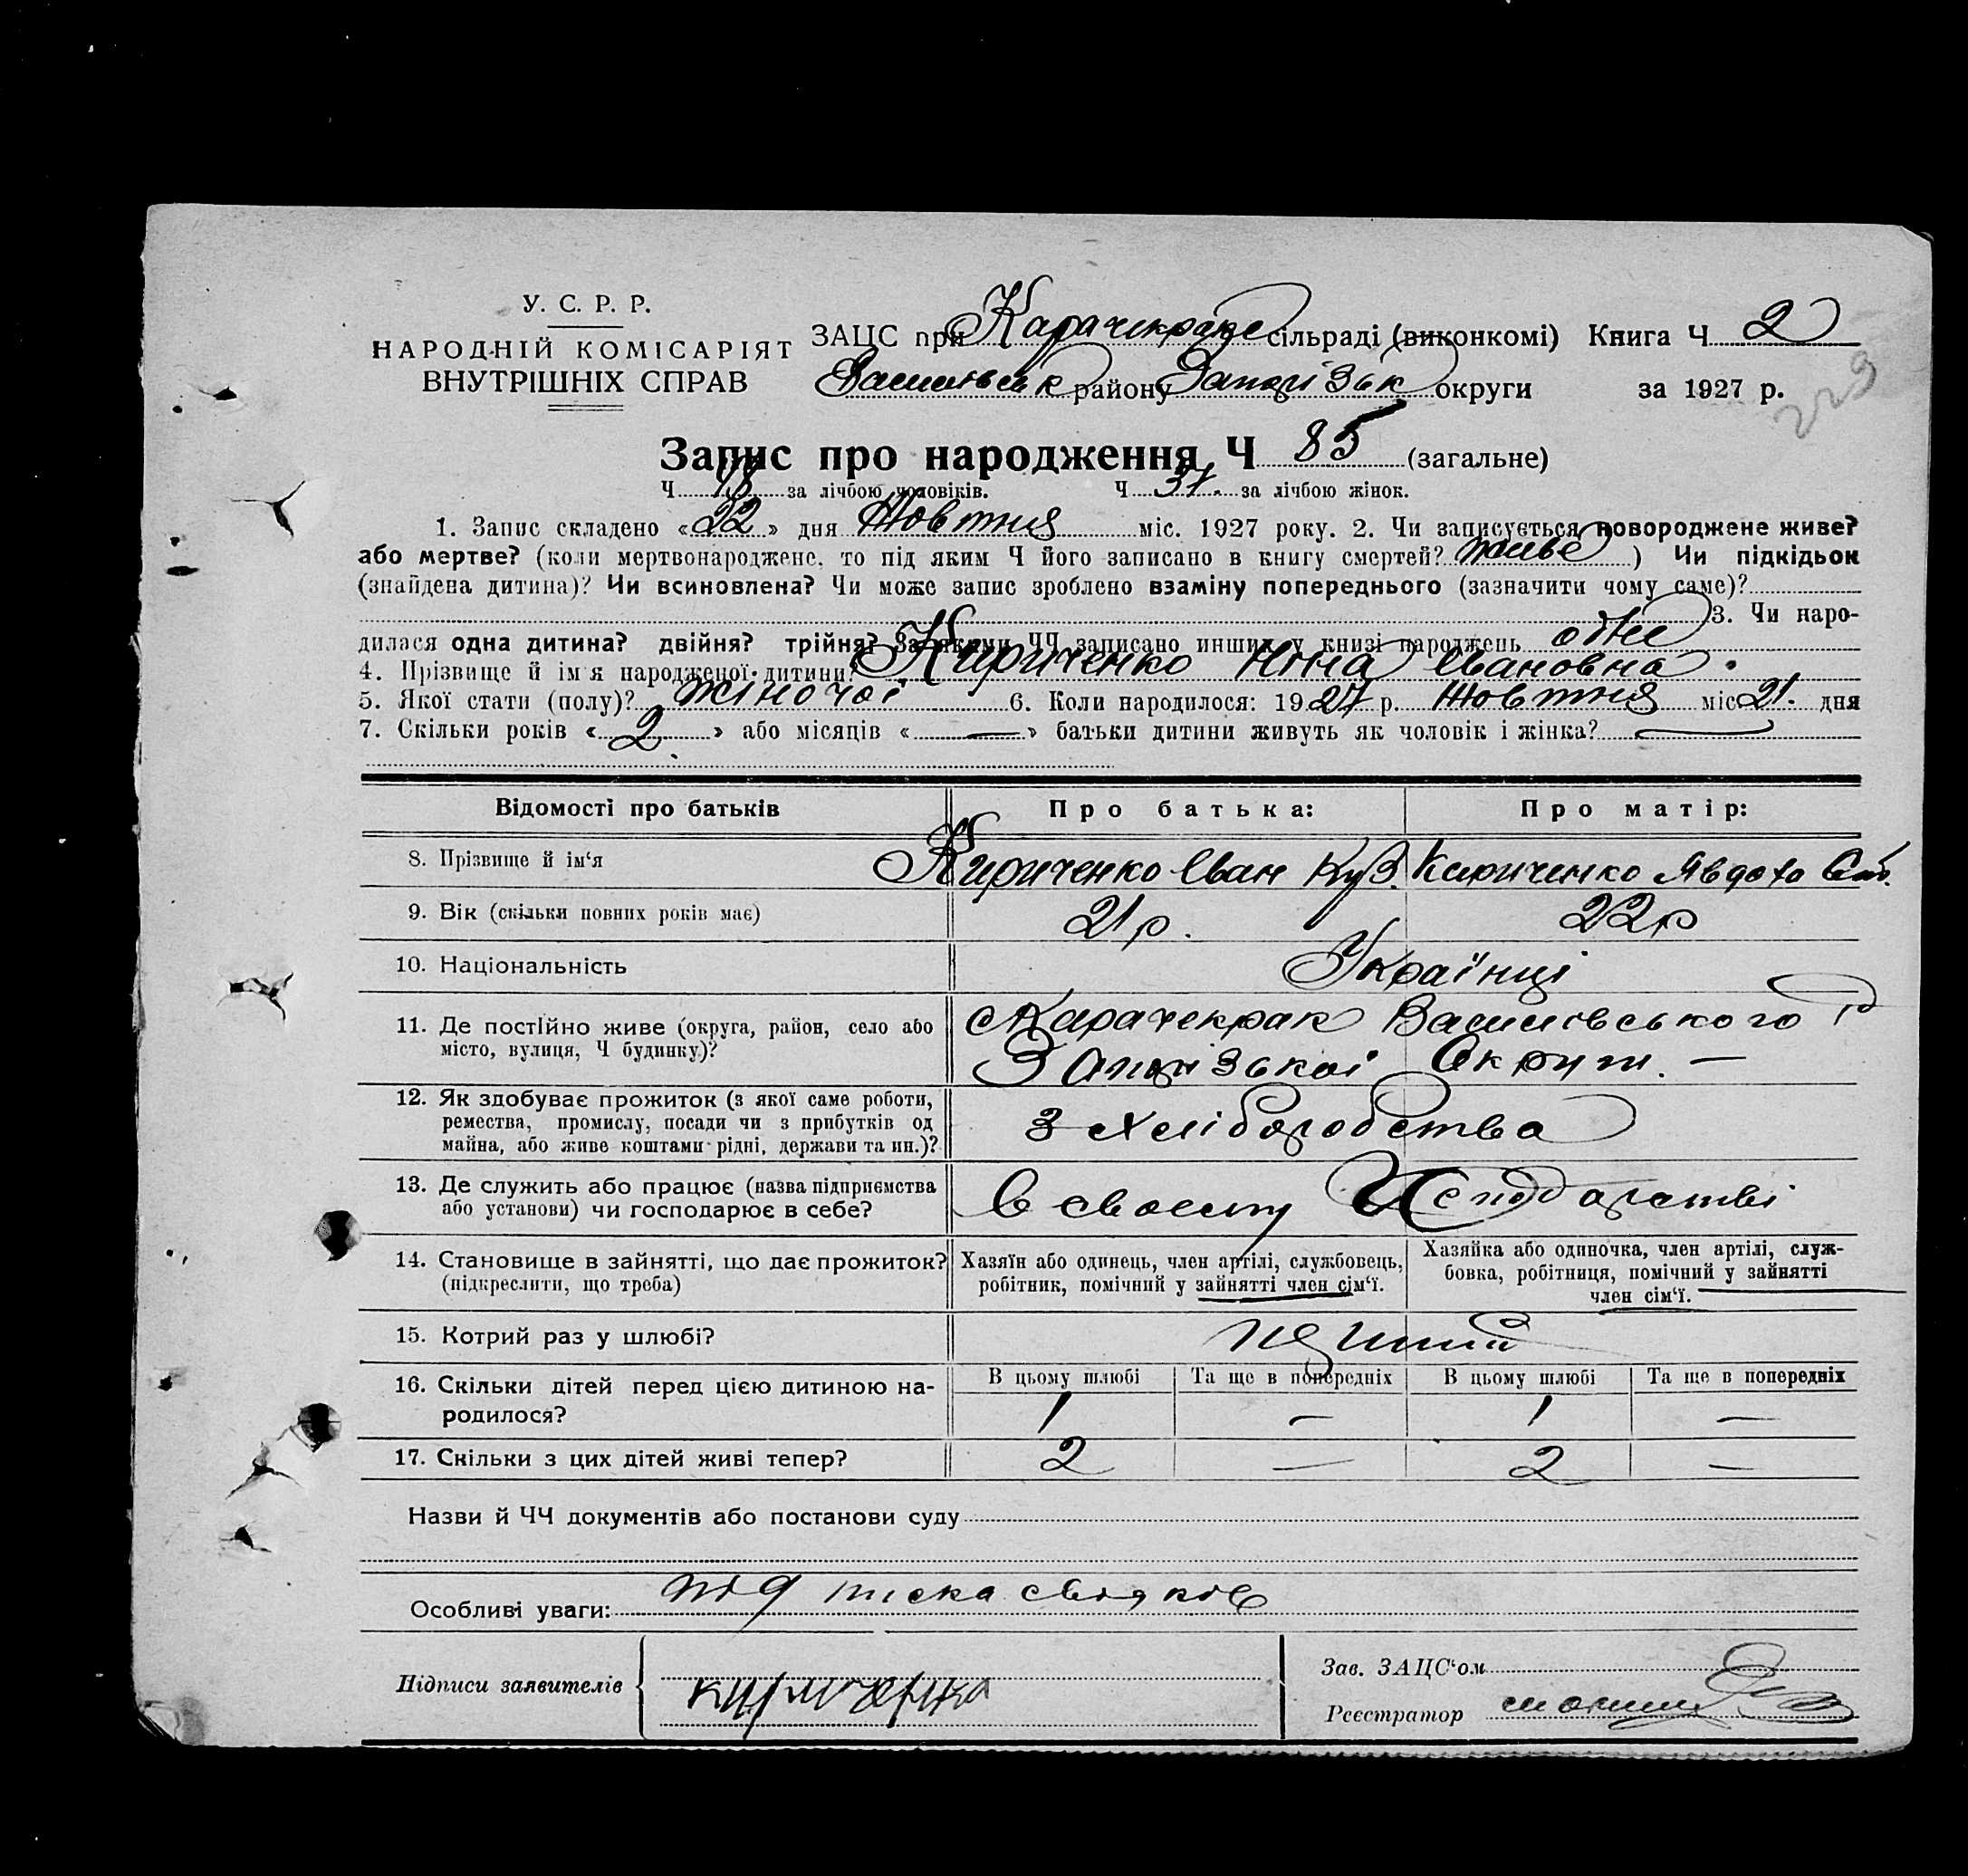 У. С. Р. Р.
НАРОДНІЙ КОМІСАРІЯТ
ВНУТРІШНІХ СПРАВ
ЗАЦС при Карачекраке сільраді (виконкомі) Книга Ч 2
Василівськ району Запорізьк округи за 1927 р.
229
Запис про народження Ч 85 (загальне)
Ч 48 за лічбою чоловіків. Ч 37. за лічбою жінок.
1. Запис складено «22» дня Жовтня міс. 1927 року. 2. Чи записується новороджене живе?
або мертве? (коли мертвонароджене, то під яким Ч його записано в книгу смертей? живе ) Чи підкідьок
(знайдена дитина)? Чи всиновлена? Чи може запис зроблено взаміну попереднього (зазначити чому саме)?
3. Чи наро-
дилася одна дитина? двійня? трійня? За якими ЧЧ записано инших у книзі народжень одне
4. Прізвище й ім'я народженої дитини? Кириченко Ніна Івановна.
5. Якої стати (полу)? жіночої 6. Коли народилося: 1927 р. Жовтня міс 21. дня
7. Скільки років «2» або місяців « — » батьки дитини живуть як чоловік і жінка? —
Відомості про батьків Про батька: Про матір:
8. Прізвище й ім'я Кириченко Іван Куз. Кириченко Явдоха
9. Вік (скільки повних років має) 21 р. 22 р
10. Національність Українці
11. Де постійно живе (округа, район, село або
місто, вулиця, Ч будинку)?
с Карачекрак Василівського р
Запорізької Округи. —
12. Як здобуває прожиток (з якої саме роботи,
ремества, промислу, посади чи з прибутків од
майна, або живе коштами рідні, держави та ин.)?
З хліборобства
13. Де служить або працює (назва підприємства
або установи) чи господарює в себе?
в своєму господарстві
14. Становище в зайнятті, що дає прожиток?
(підкреслити, що треба)
Хазяїн або одинець, член артілі, службовець,
робітник, помічний у зайнятті член сім'ї.
Хазяйка або одиночка, член артілі, служ-
бовка, робітниця, помічний у зайнятті
член сім'ї.
15. Котрий раз у шлюбі?
16. Скільки дітей перед цією дитиною на-
родилося?
В цьому шлюбі Та ще в попередніх В цьому шлюбі Та ще в попередніх
1 — 1 —
17. Скільки з цих дітей живі тепер? 2 — 2 —
Назви й ЧЧ документів або постанови суду
Особливі уваги: підписка свідків
Підписи заявителів
Кириченко
Зав. ЗАЦС'ом
Реєстратор